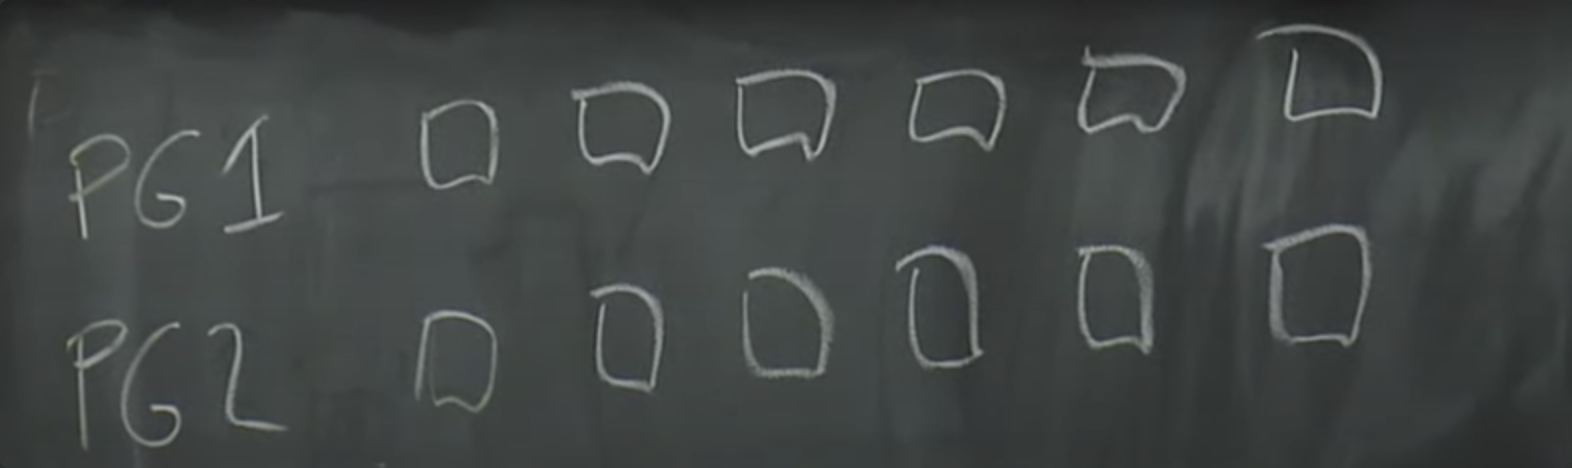 PG1
PG2